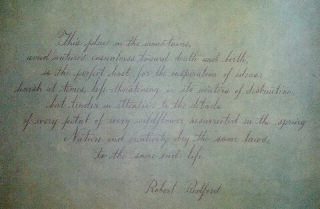 This place in the mountains,
amid nature's casualness toward death and birth,
is the perfect host for the inspiration of ideas:
harsh at times, life threatening in its winters of destruction,
but tender in attention to the details
of every petal of every wildflower resurrected in the spring.
Nature and creativity obey the same laws,
to the same end: life.
Robert Redford